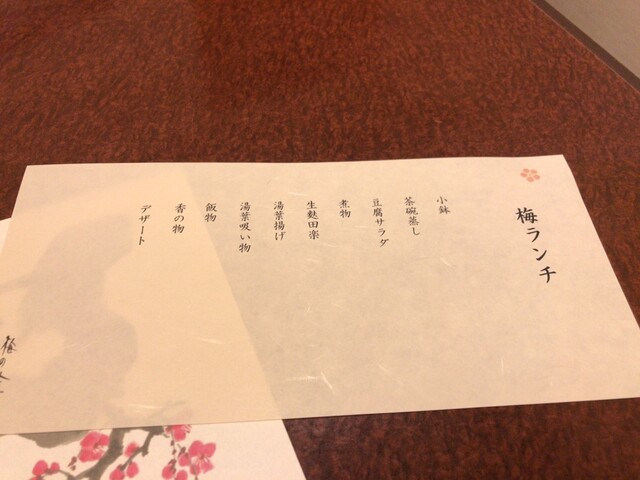 梅ランチ
小鉢
茶碗蒸し
豆腐サラダ
煮物
生麩田楽
湯葉揚げ
湯葉吸い物
飯物
香の物
デザート